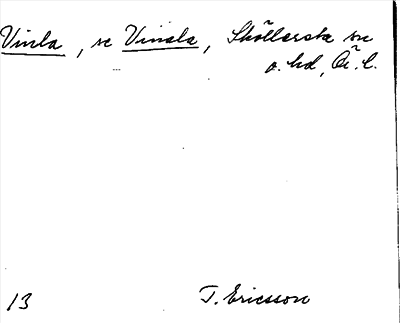 Vinla, se Vinala, Sköllersta sn
o. hd, Ör. l.
13
T. Ericsson